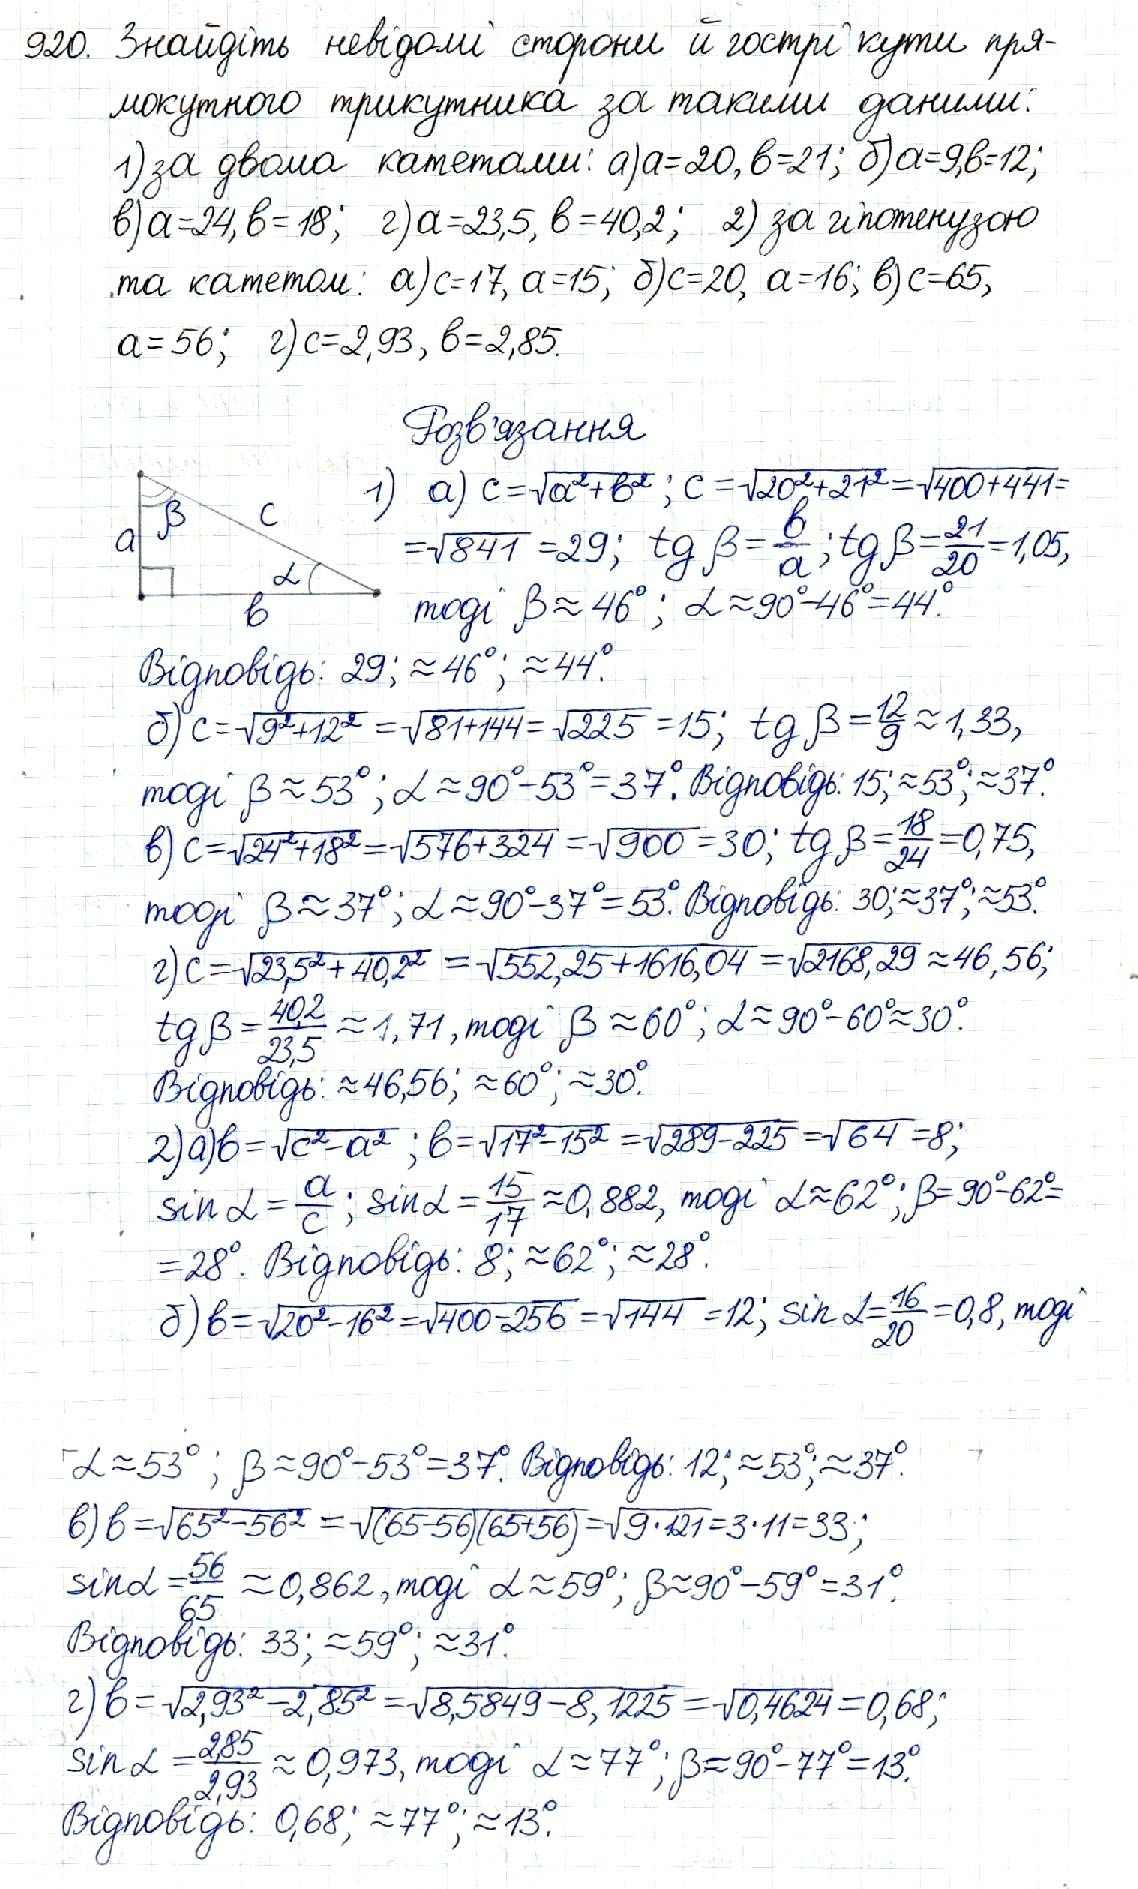 920. Знайдіть невідомі сторони й гострі кути пря-
мокутного трикутника за такими даними:
1) за двома катетами: а) a=20, b=21; б) a=9, b=12;
в) a=24, b=18; г) a=23,5, b=40,2; 2) за гіпотенузою
та катетом: а) c=17, a=15; б) c=20, a=16; в) c=65,
a=56; г) c=2,93, b=2,85.
Розв'язання
a β c α b
1) а) c=√(a²+b²); c=√(20²+21²)=√(400+441)=
=√841=29; tg β=b/a; tg β=21/20=1,05,
тоді β≈46°; α≈90°-46°=44°.
Відповідь: 29; ≈46°; ≈44°.
б) c=√(9²+12²)=√(81+144)=√225=15; tg β=12/9≈1,33,
тоді β≈53°; α≈90°-53°=37°. Відповідь: 15; ≈53°; ≈37°.
в) c=√(24²+18²)=√(576+324)=√900=30; tg β=18/24=0,75,
тоді β≈37°; α≈90°-37°=53°. Відповідь: 30; ≈37°; ≈53°.
г) c=√(23,5²+40,2²)=√(552,25+1616,04)=√2168,29≈46,56;
tg β=40,2/23,5≈1,71, тоді β≈60°; α≈90°-60°≈30°.
Відповідь: ≈46,56; ≈60°; ≈30°.
2) а) b=√(c²-a²); b=√(17²-15²)=√(289-225)=√64=8;
sin α=a/c; sin α=15/17≈0,882, тоді α≈62°; β=90°-62°=
=28°. Відповідь: 8; ≈62°; ≈28°.
б) b=√(20²-16²)=√(400-256)=√144=12; sin α=16/20=0,8, тоді
α≈53°; β≈90°-53°=37°. Відповідь: 12; ≈53°; ≈37°.
в) b=√(65²-56²)=√((65-56)(65+56))=√(9·121)=3·11=33;
sin α=56/65≈0,862, тоді α≈59°; β≈90°-59°=31°.
Відповідь: 33; ≈59°; ≈31°.
г) b=√(2,93²-2,85²)=√(8,5849-8,1225)=√0,4624=0,68;
sin α=2,85/2,93≈0,973, тоді α≈77°; β≈90°-77°=13°.
Відповідь: 0,68; ≈77°; ≈13°.